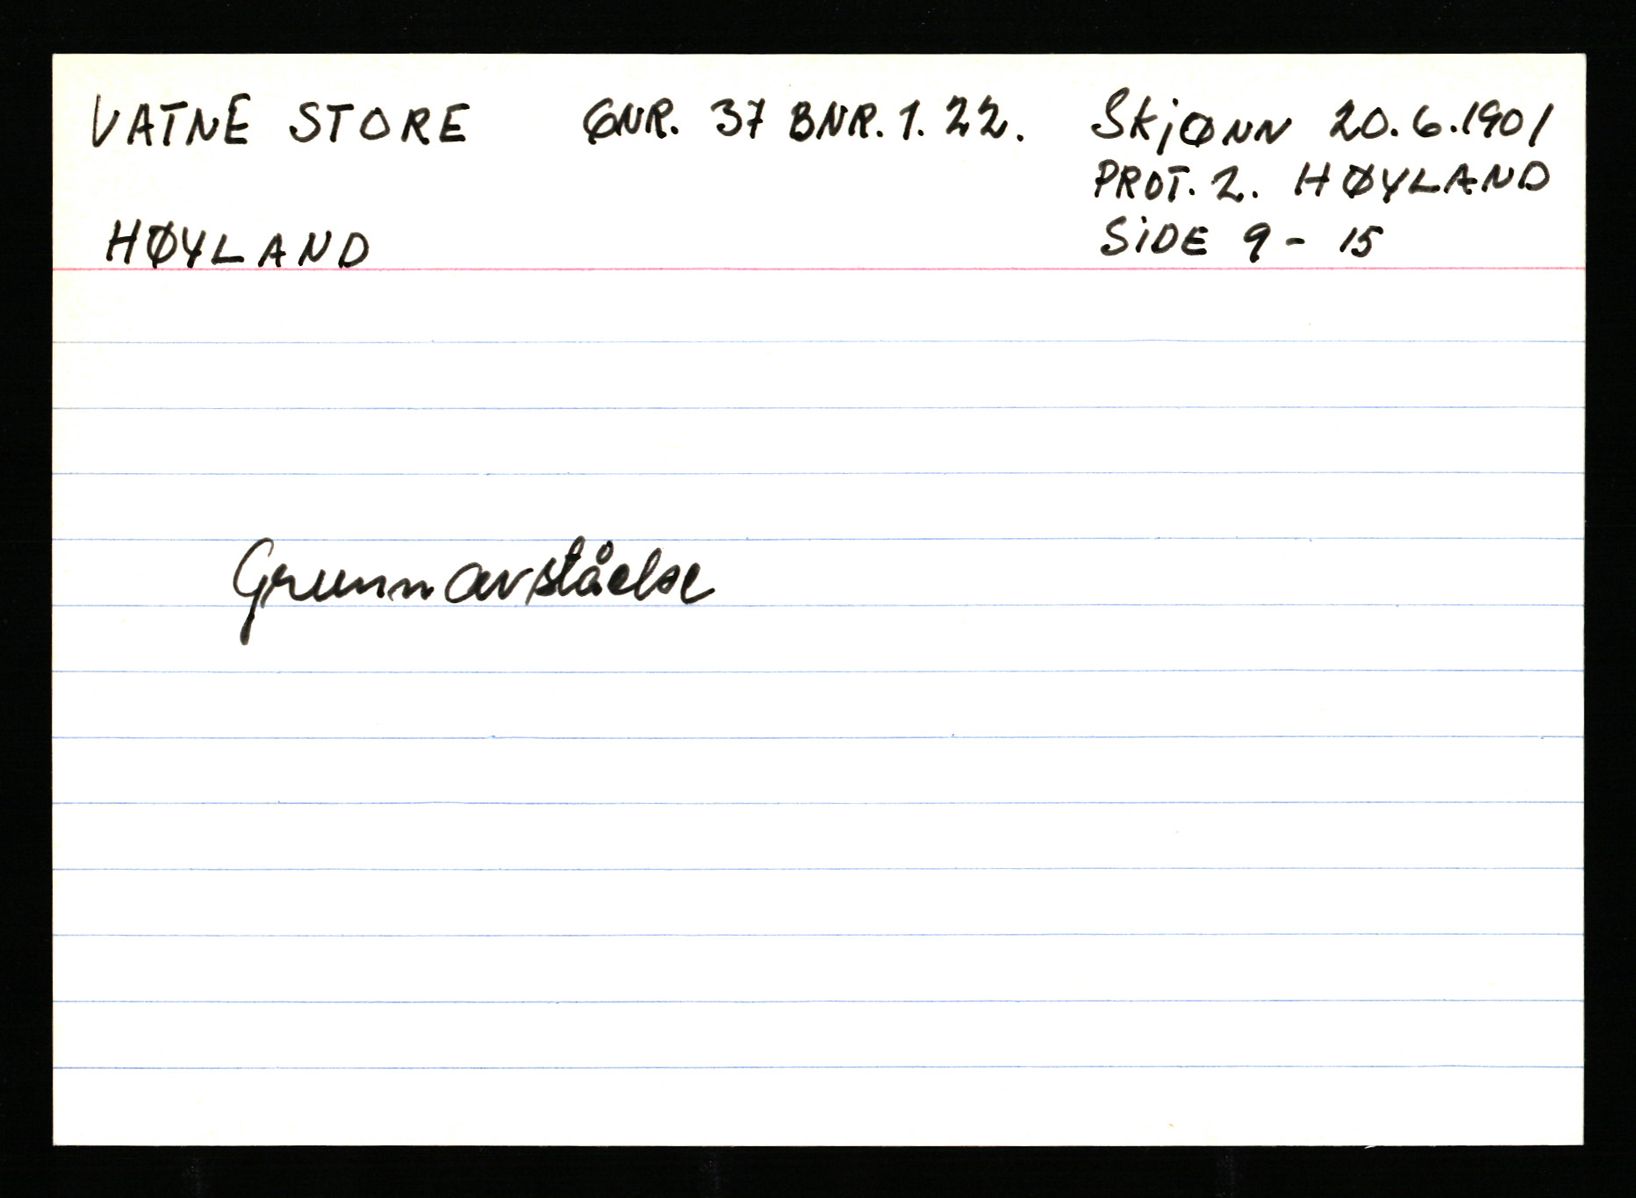 VATNE STORE GNR. 37 BNR. 1. 22. Skjønn 20.6.1901
PROT. 2. HØYLAND
HØYLAND SiDE 9 - 15
Grunnavståelse